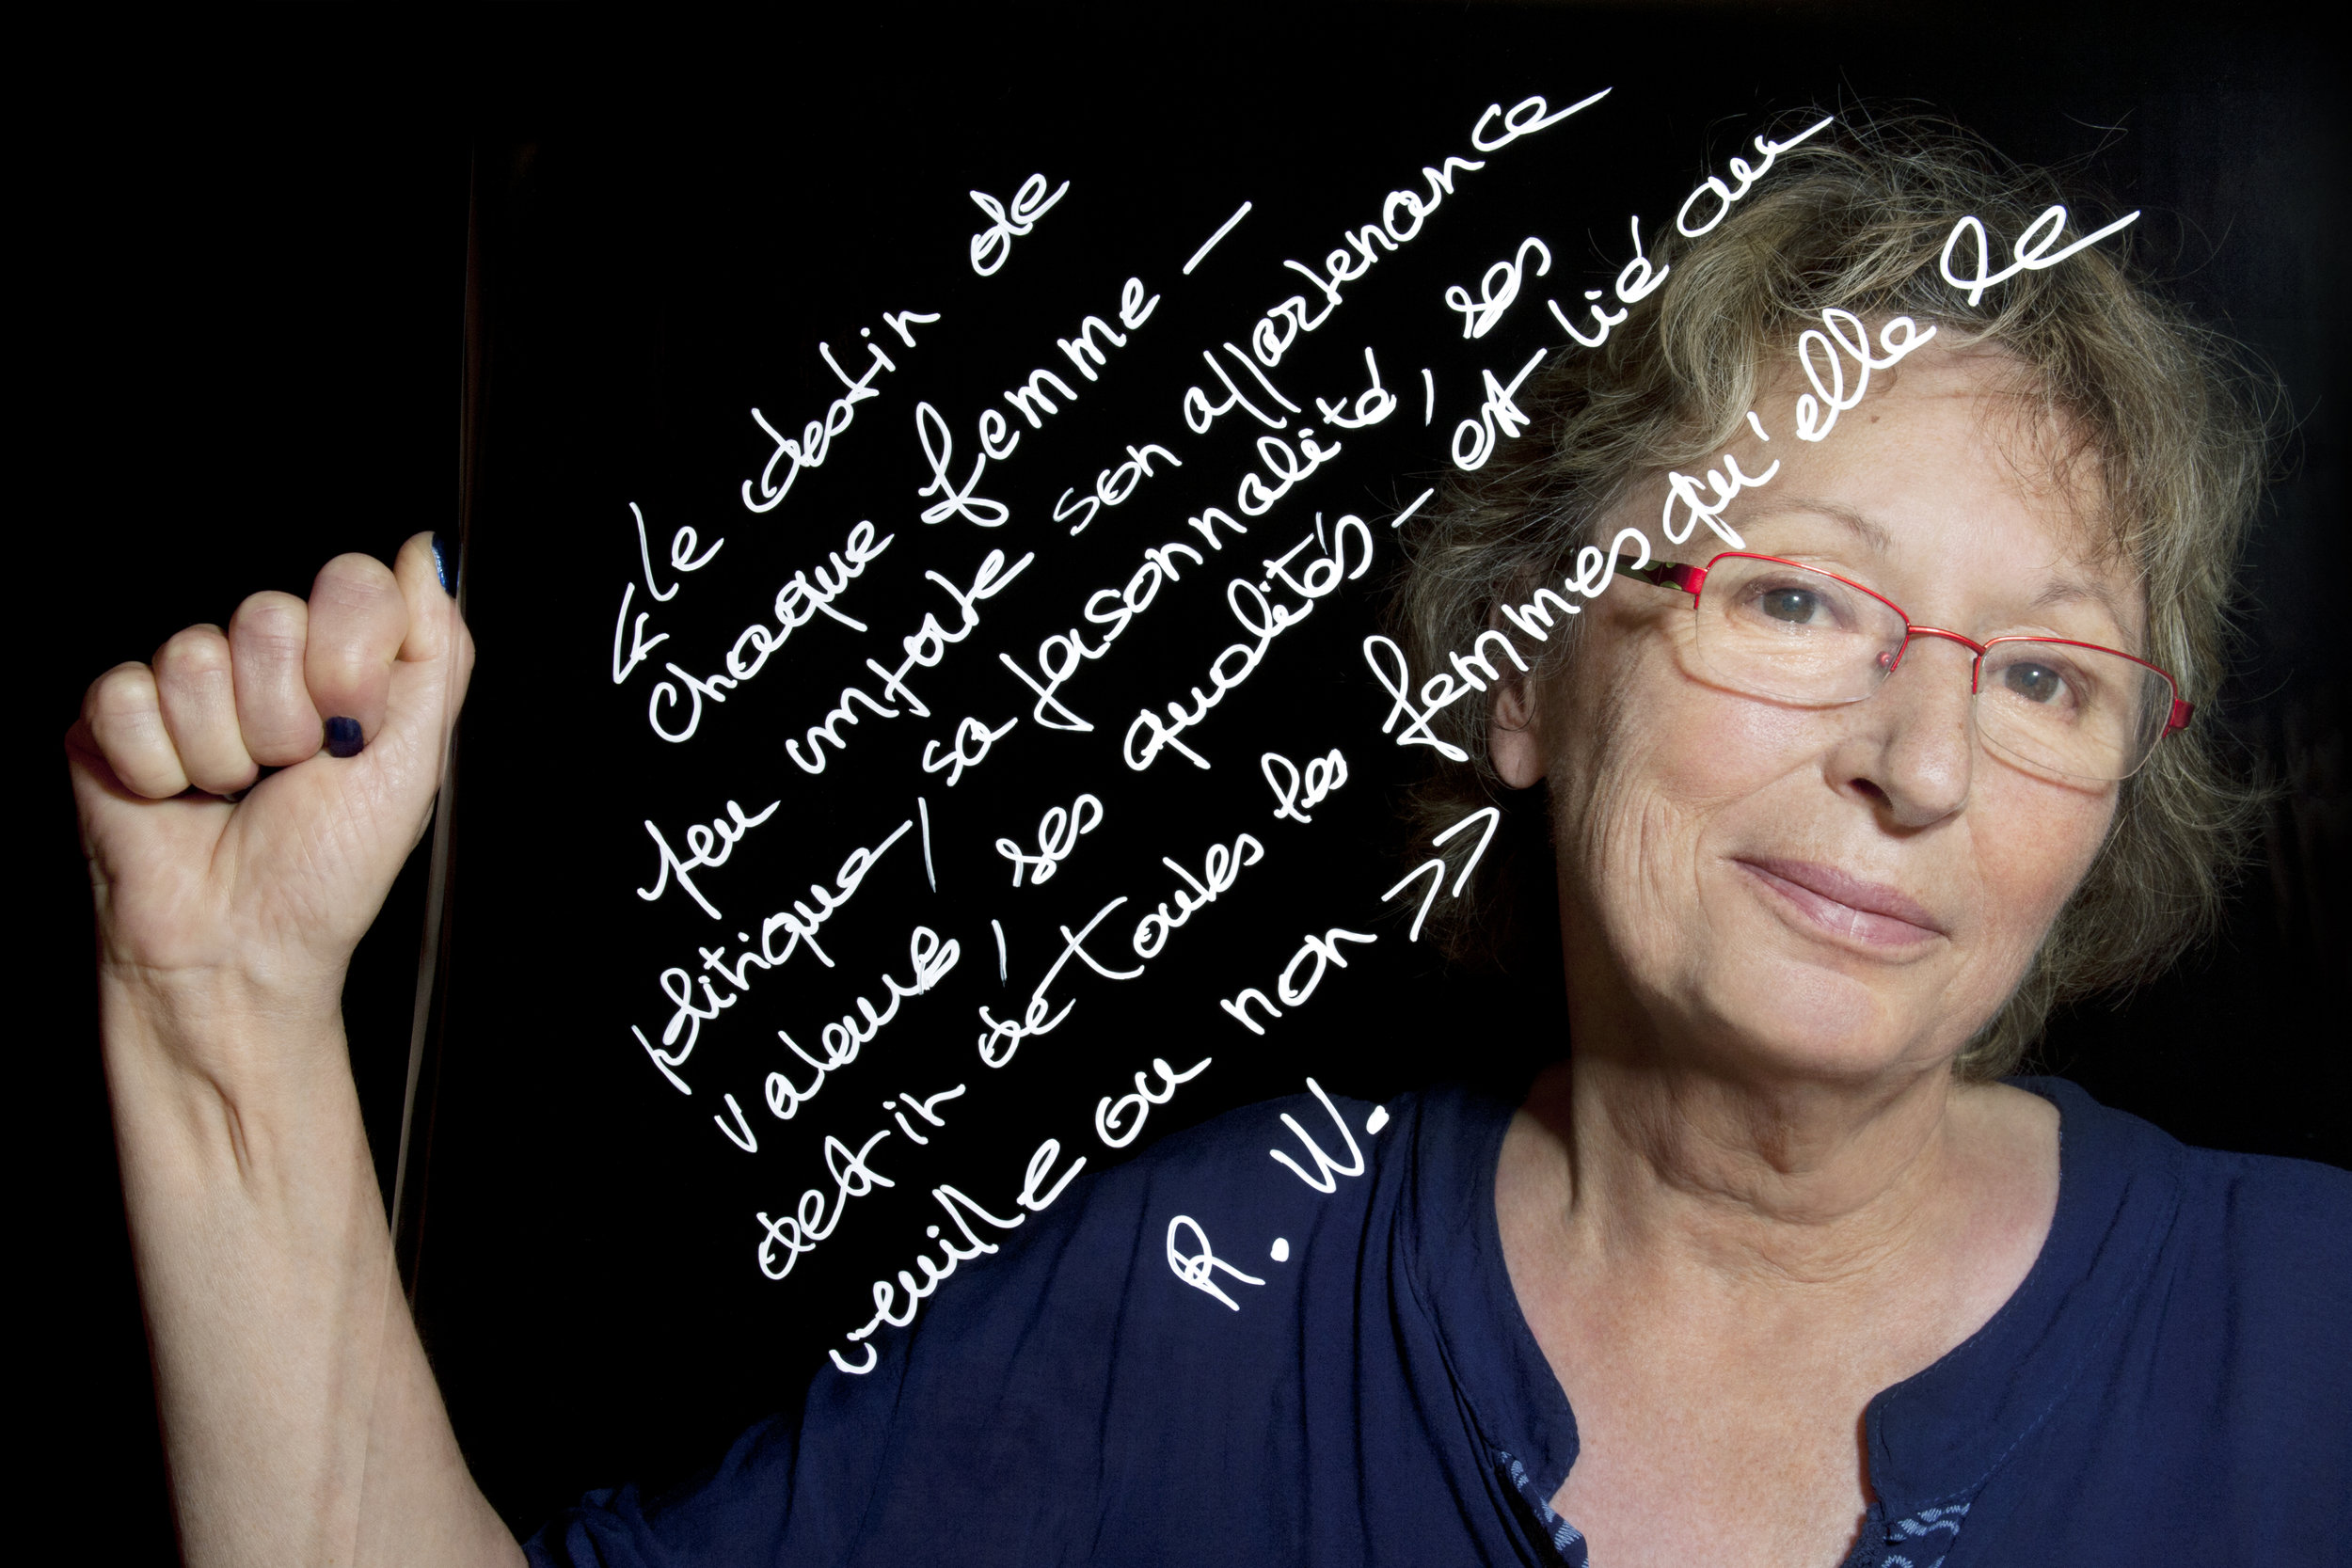 « le destin de
chaque femme –
peu importe son appartenance
politique, sa personnalité, ses
valeurs, ses qualités – est lié au
destin de toutes les femmes qu'elle le
veuille ou non »
R. W.